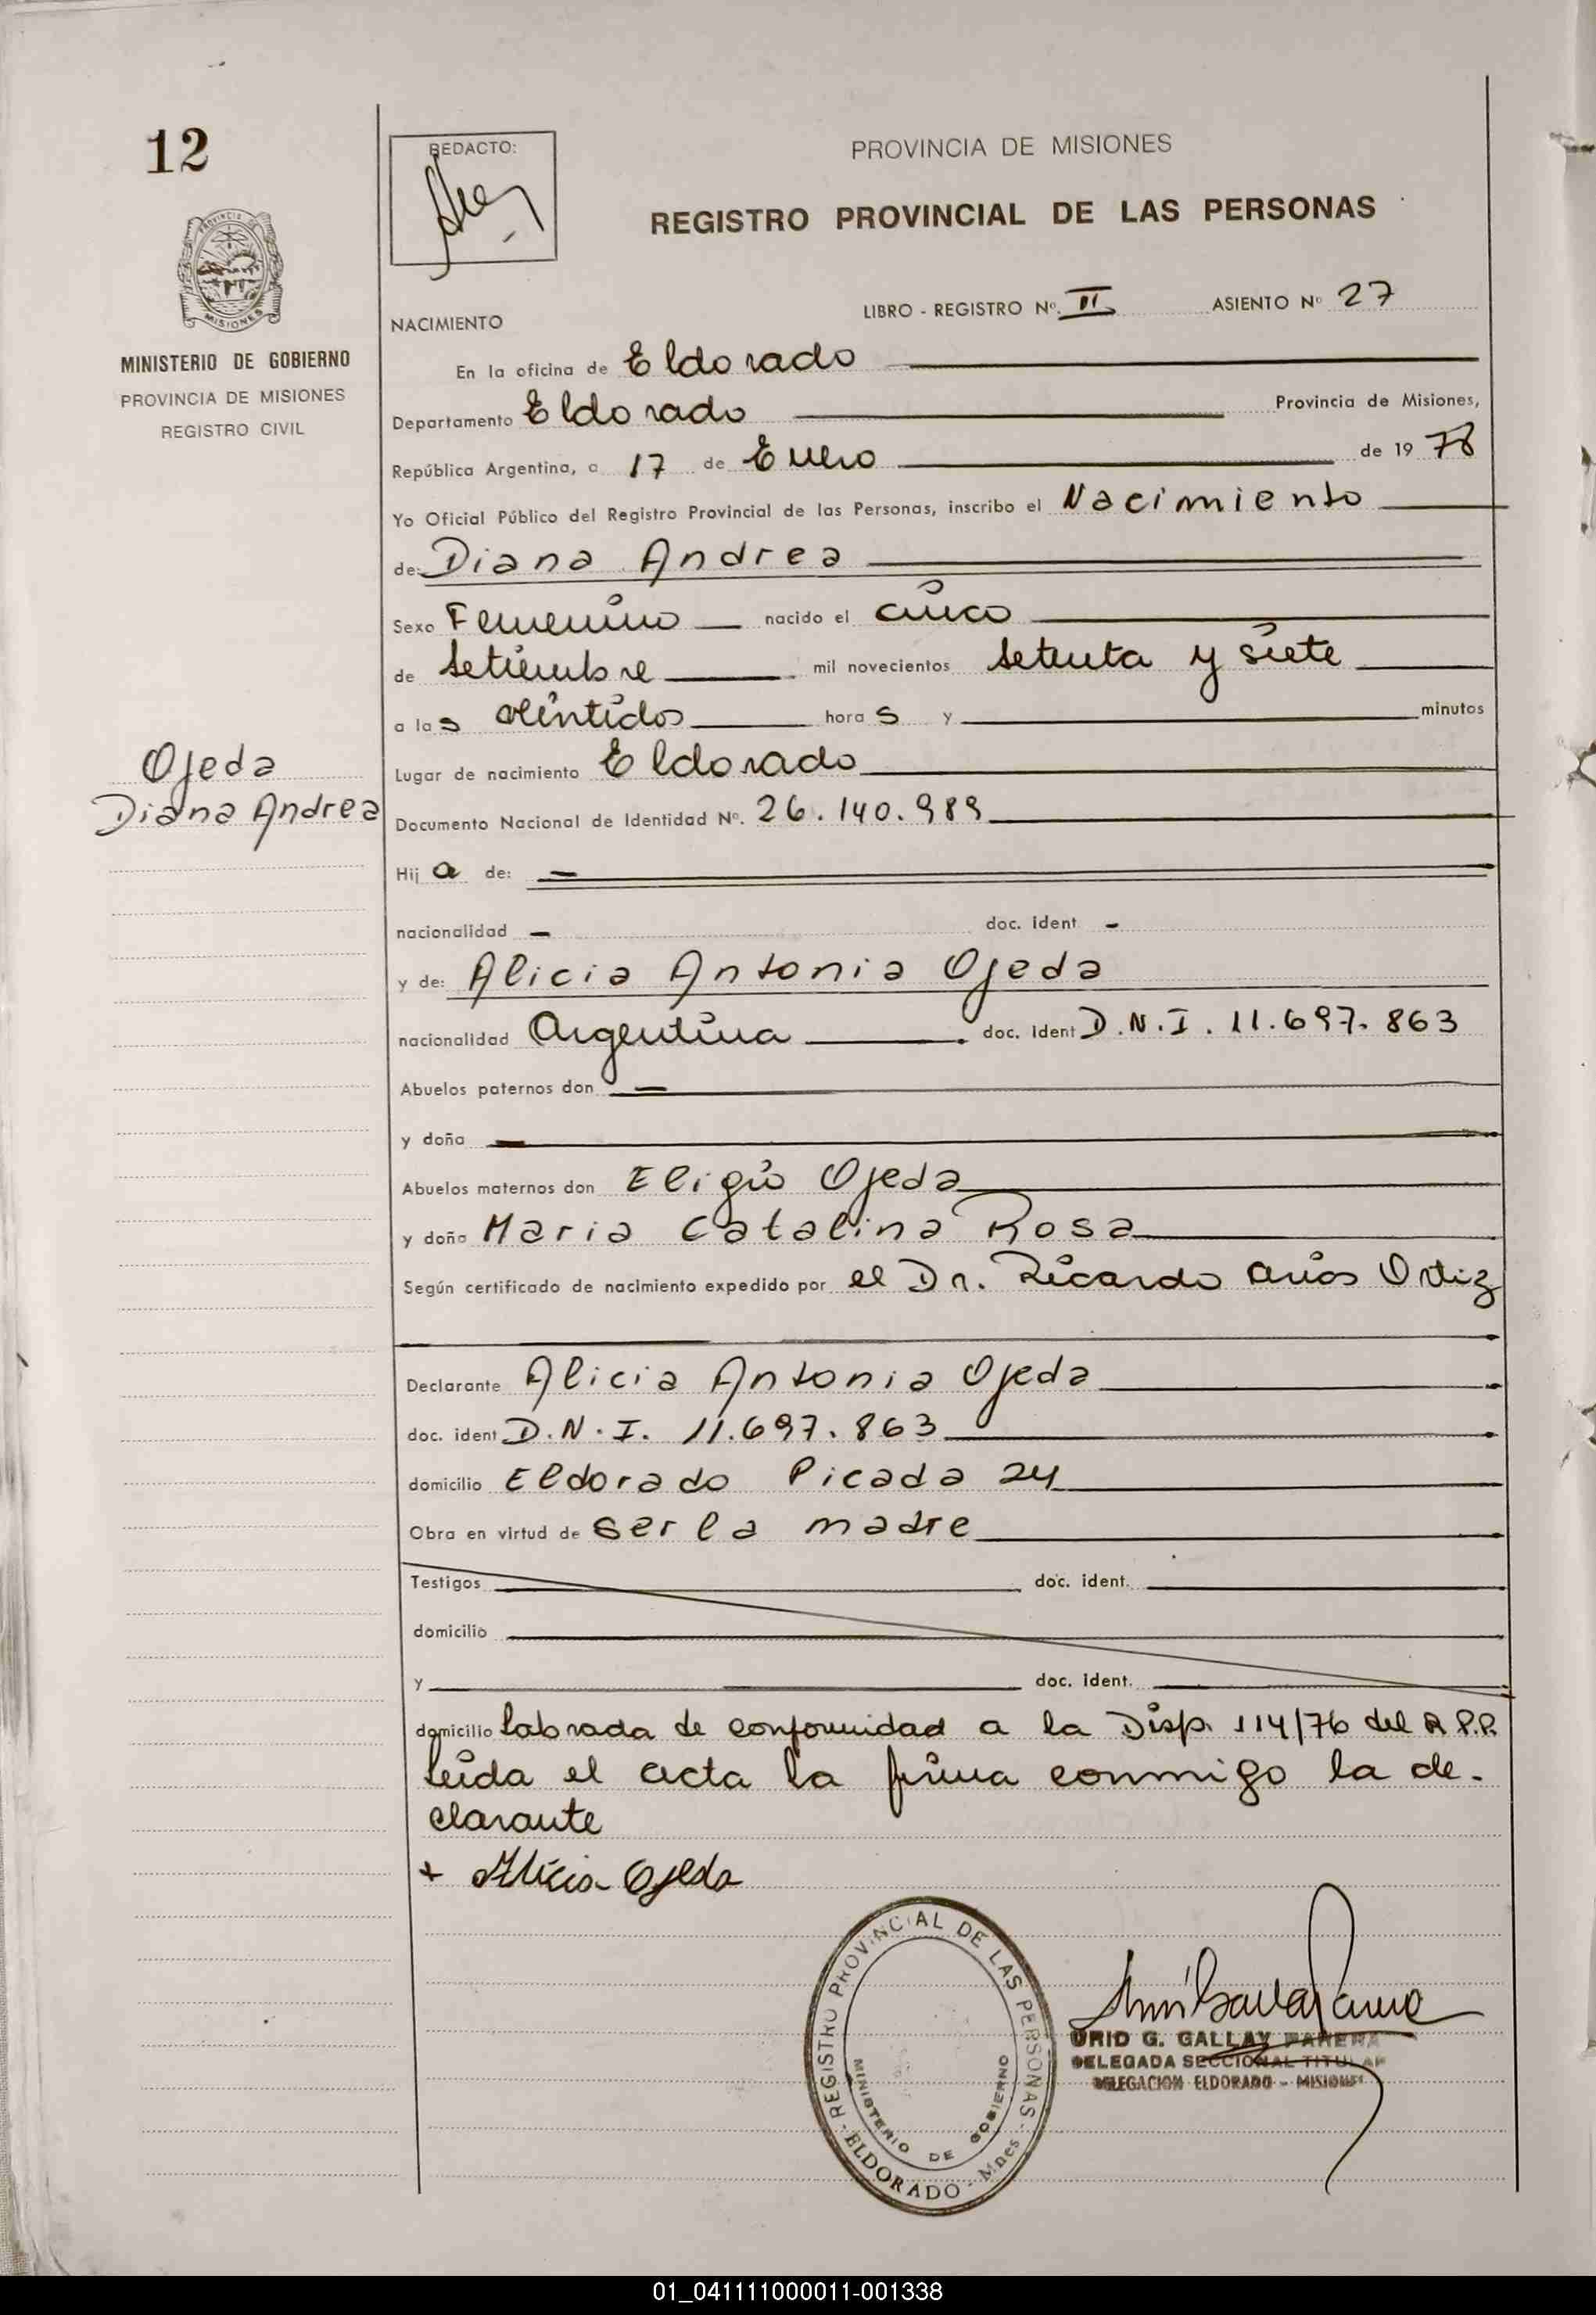 12
REDACTO:
PROVINCIA DE MISIONES
REGISTRO PROVINCIAL DE LAS PERSONAS
PROVINCIA DE
MISIONES
MINISTERIO DE GOBIERNO
PROVINCIA DE MISIONES
REGISTRO CIVIL
LIBRO - REGISTRO Nº. II ASIENTO Nº 27
NACIMIENTO
En la oficina de Eldorado
Departamento Eldorado Provincia de Misiones,
República Argentina, a 17 de Enero de 19 78
Yo Oficial Público del Registro Provincial de las Personas, inscribo el Nacimiento
de: Diana Andrea
Sexo Femenino nacido el cinco
de Setiembre mil novecientos setenta y siete
a las veintidos horas y minutos
Ojeda
Diana Andrea
Lugar de nacimiento Eldorado
Documento Nacional de Identidad Nº. 26.140.989
Hija de: —
nacionalidad — doc. ident -
y de: Alicia Antonia Ojeda
nacionalidad Argentina doc. ident D.N.I. 11.697.863
Abuelos paternos don —
y doña —
Abuelos maternos don Eligio Ojeda
y doña Maria Catalina Rosa
Según certificado de nacimiento expedido por el Dr. Ricardo Arios Ortiz
Declarante Alicia Antonia Ojeda
doc. ident D.N.I. 11.697.863
domicilio Eldorado Picada 24
Obra en virtud de ser la madre
Testigos doc. ident.
domicilio
y doc. ident.
domicilio labrada de conformidad a la Disp. 114/76 del R.P.P.
leida el acta la firma conmigo la de-
clarante
+ Alicia Ojeda
REGISTRO PROVINCIAL DE LAS PERSONAS - ELDORADO - Mnes
MINISTERIO DE GOBIERNO
URID G. GALLAY PARERA
DELEGADA SECCIONAL TITULAR
DELEGACION ELDORADO - MISIONES
01_041111000011-001338